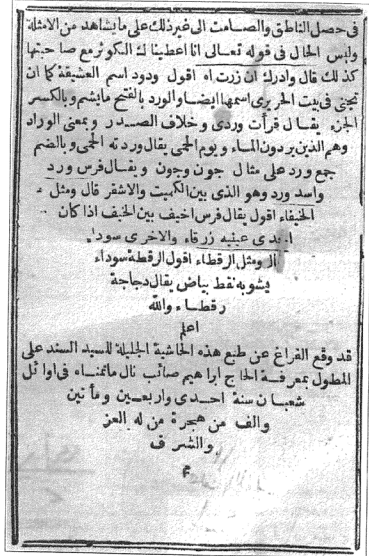 فى حصل الناطق والصامت الى غير ذلك على مايشاهد من الامثلة
وليس الحال فى قوله تعالى انا اعطيناك الكوثر مع صاحبتها
كذلك قال وادرك ان زرت اه اقول ودود اسم العشيقة كما ان
تجنى فى بيت الحريرى اسمها ايضا والورد بالفتح مايشم وبالكسر
الجزء يقال قرأت وردى وخلاف الصدر وبمعنى الوراد
وهم الذين يردون الماء ويوم الحمى يقال وردته الحمى وبالضم
جمع ورد على مثال جون وجون ويقال فرس ورد
واسد ورد وهو الذى بين الكميت والاشقر قال ومثل
الخيفاء اقول يقال فرس اخيف بين الخيف اذا كان
احدى عينيه زرقاء والاخرى سوداء
قال ومثل الرقطاء اقول الرقطة سوداء
يشوبه نقط بياض يقال دجاجة
رقطاء والله
اعلم
قد وقع الفراغ عن طبع هذه الحاشية الجليلة للسيد السند على
المطول بمعرفة الحاج ابراهيم صائب نال ماتمناه فى اوائل
شعبان سنة احدى واربعين ومأتين
والف من هجرة من له العز
والشرف
م